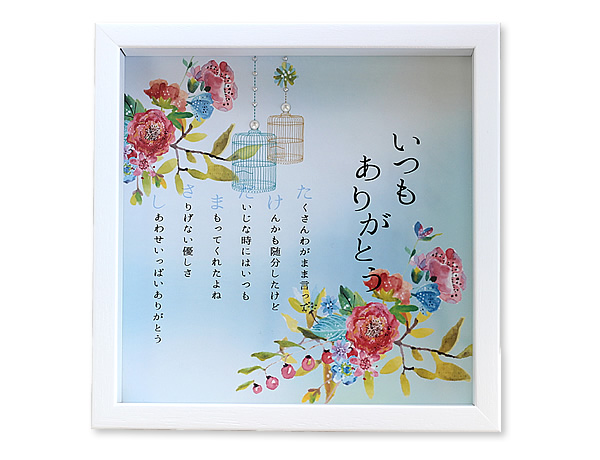 いつも
ありがとう
たくさんわがまま言って
けんかも随分したけど
だいじな時にはいつも
まもってくれたよね
さりげない優しさ
しあわせいっぱいありがとう